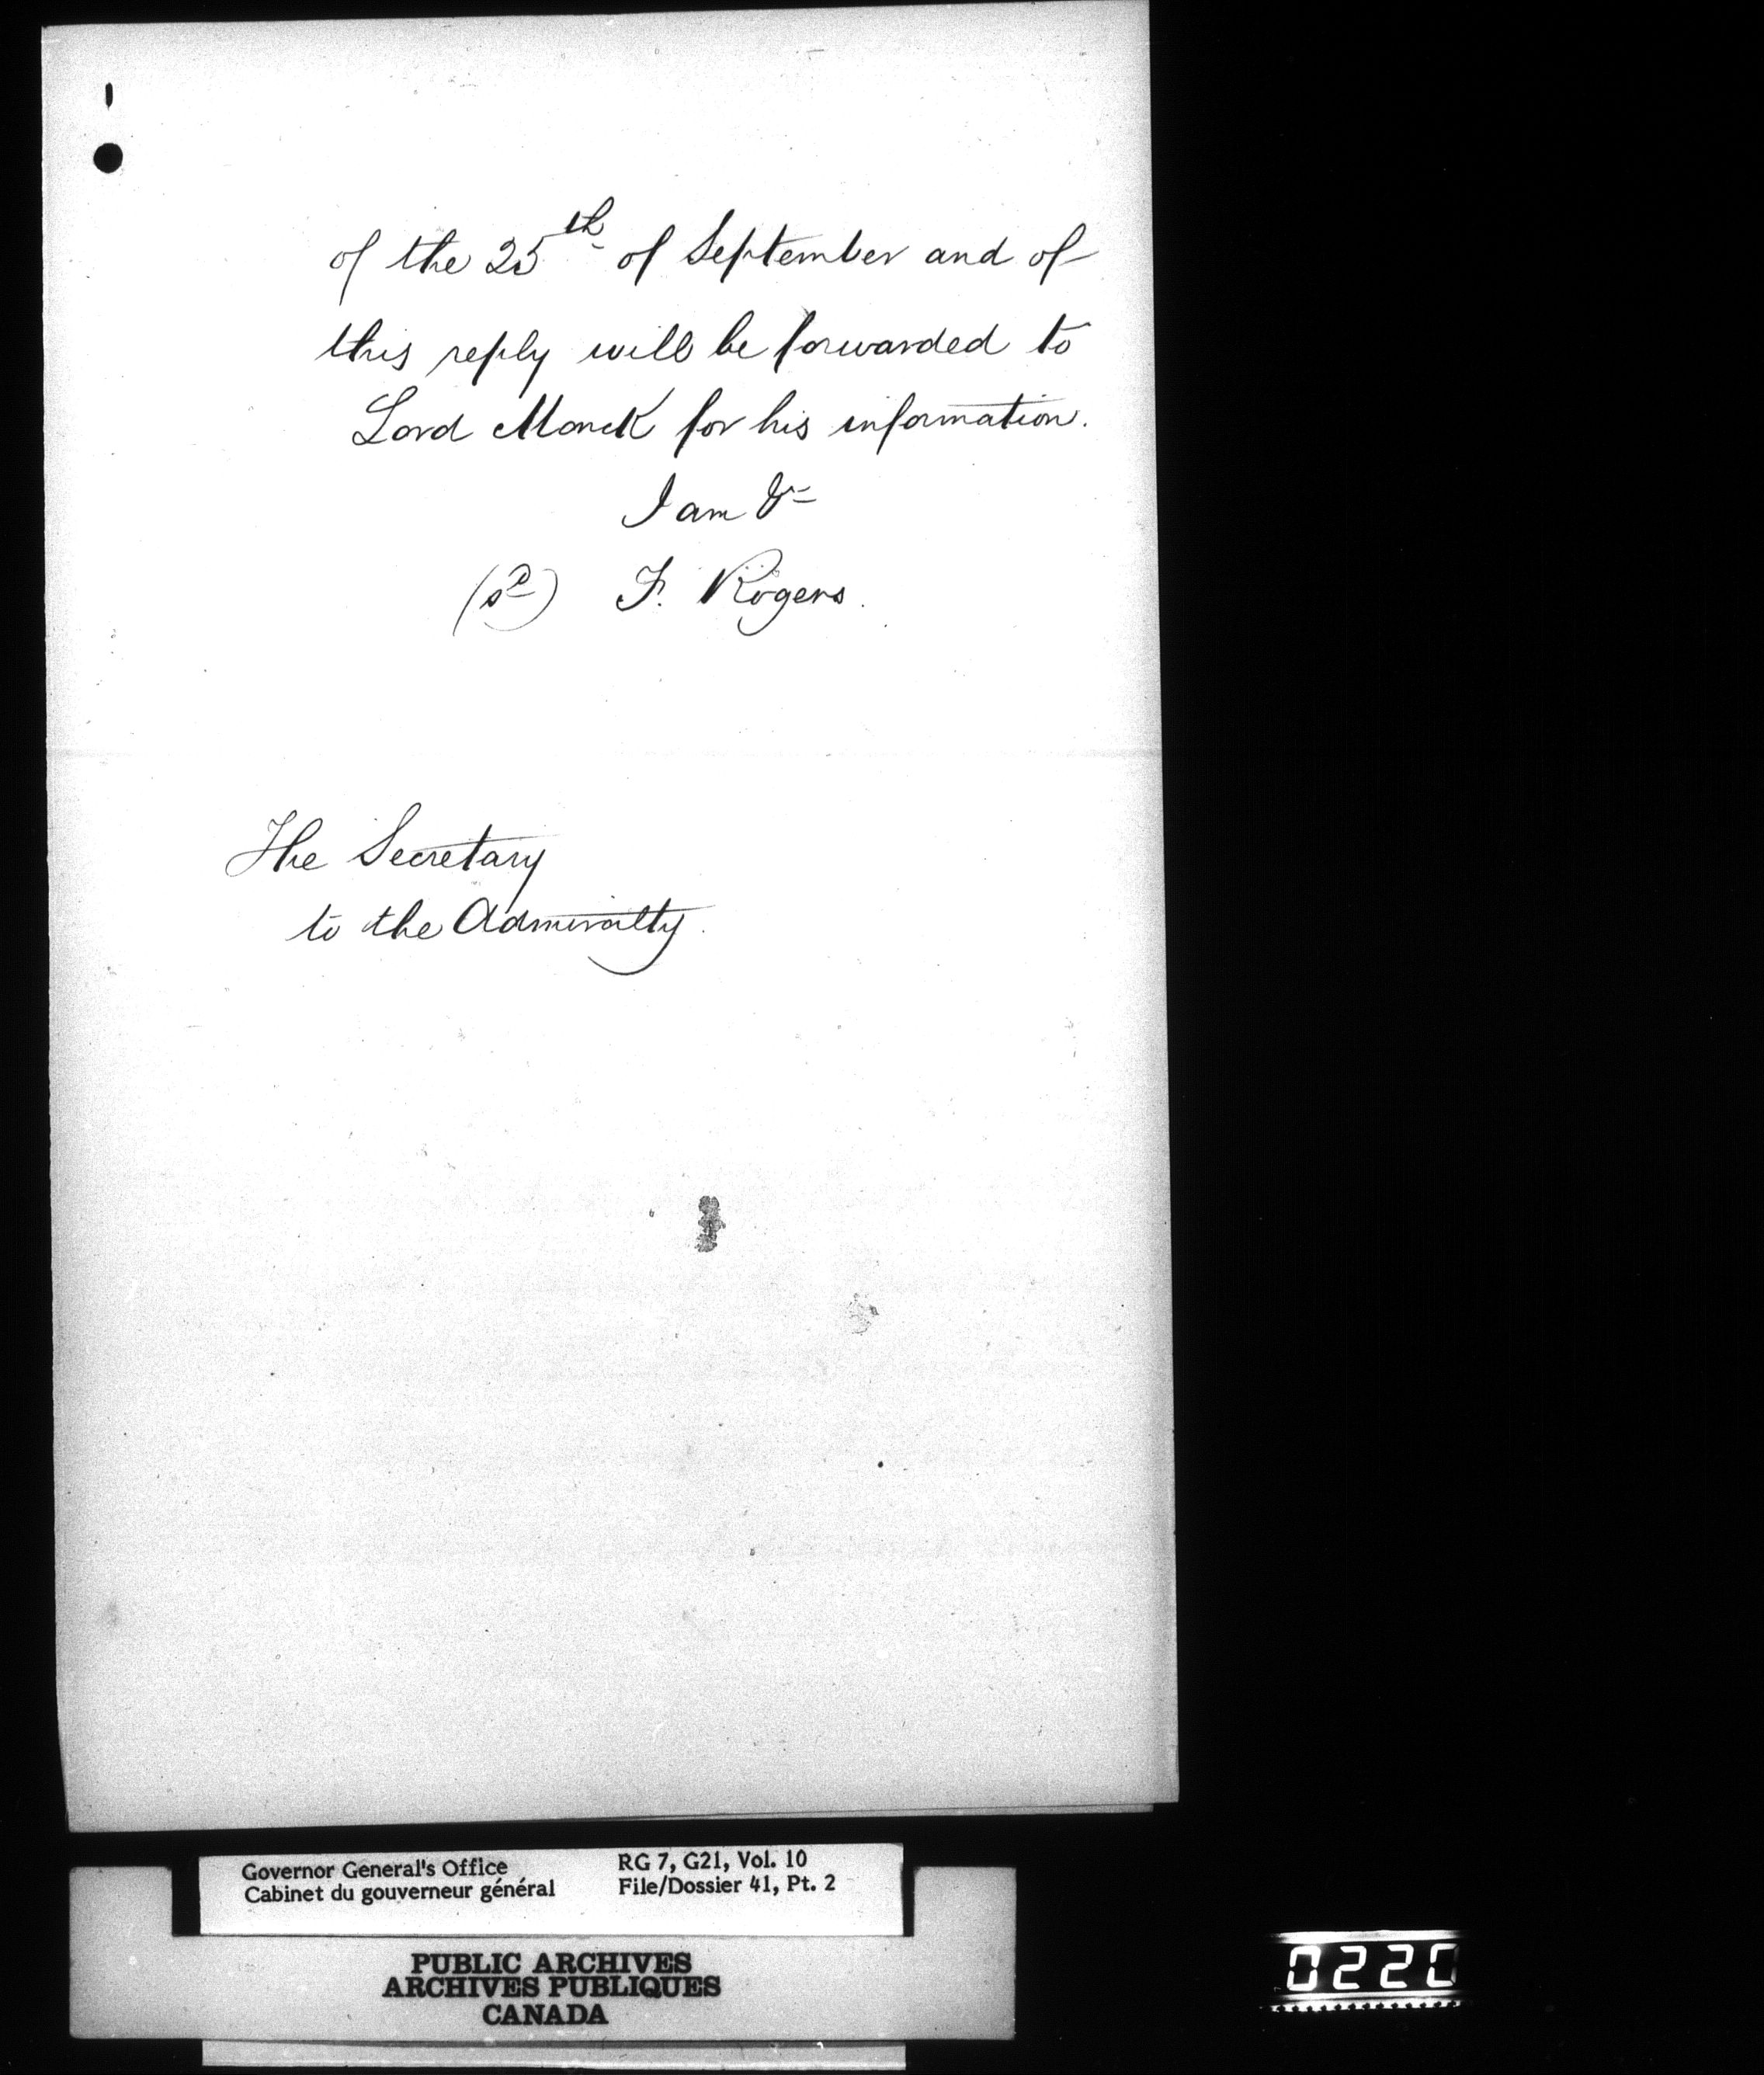 of the 25th of September and of
this reply will be forwarded to
Lord Monck for his information.
I am &c
(sd) F. Rogers.
The Secretary
to the Admiralty.
Governor General's Office
Cabinet du gouverneur général
RG 7, G21, Vol. 10
File/Dossier 41, Pt. 2
PUBLIC ARCHIVES
ARCHIVES PUBLIQUES
CANADA
0220